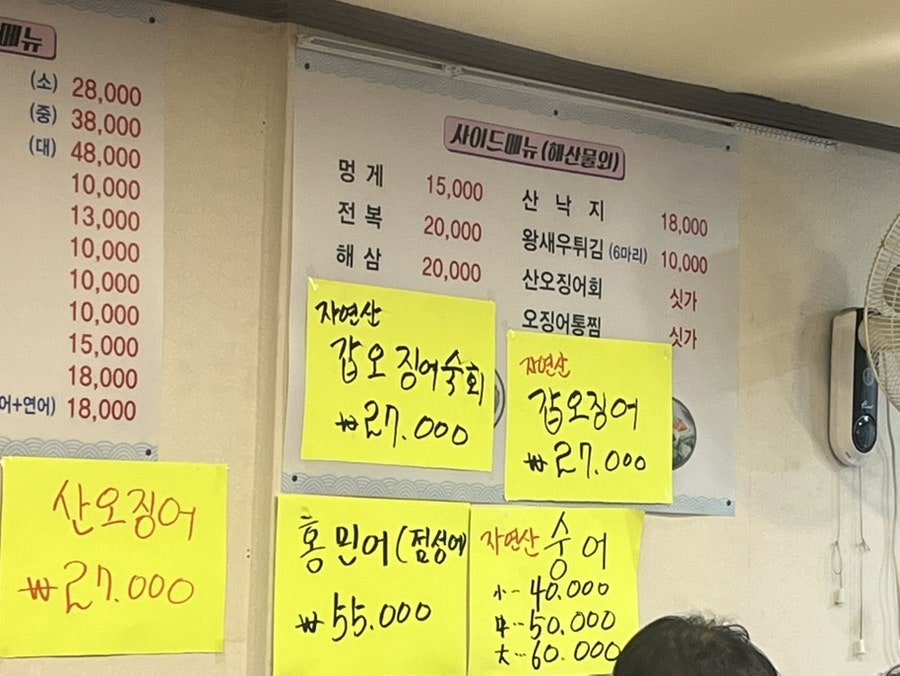 메뉴
(소) 28,000
(중) 38,000
(대) 48,000
10,000
13,000
10,000
10,000
10,000
15,000
18,000
어+연어) 18,000
사이드메뉴(해산물외)
멍게 15,000
전복 20,000
해삼 20,000
산낙지 18,000
왕새우튀김 (6마리) 10,000
산오징어회 싯가
오징어통찜 싯가
자연산
갑오징어숙회
₩27.000
자연산
갑오징어
₩27.000
산오징어
₩27.000
홍민어(점성어
₩55.000
자연산 숭어
小--40.000
中--50.000
大--60.000